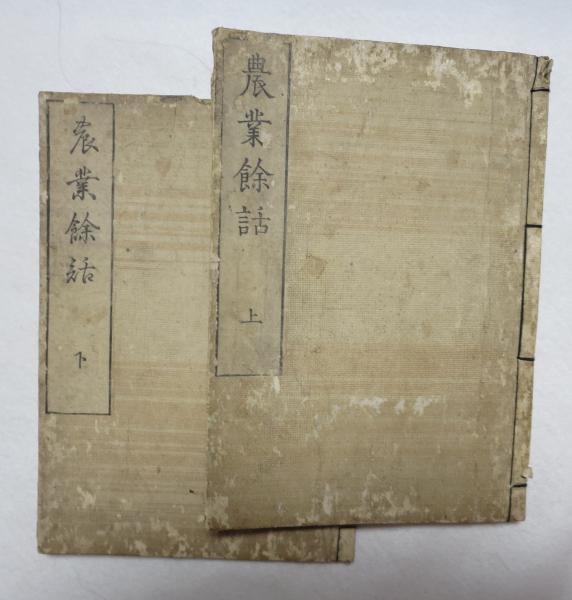 農業餘話
上
農業餘話
下